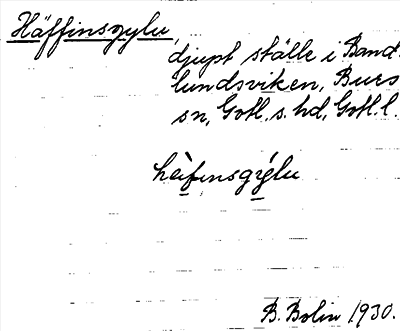 Häffinsgylu,
djupt ställe i Band-
lundsviken, Burs
sn, Gotl. s. hd, Gotl. l.
hàfinsgýlu
B. Bolin 1930.